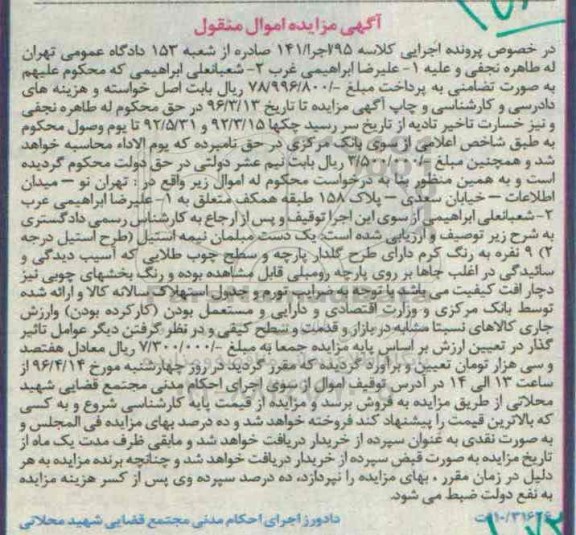 آگهی مزایده اموال منقول
در خصوص پرونده اجرایی کلاسه ۹۵/اجرا/۱۴۱ صادره از شعبه ۱۵۳ دادگاه عمومی تهران
له طاهره نجفی و علیه ۱- علیرضا ابراهیمی غرب ۲- شعبانعلی ابراهیمی که محکوم علیهم
به صورت تضامنی به پرداخت مبلغ -/۷۸/۹۹۶/۸۰۰ ریال بابت اصل خواسته و هزینه های
دادرسی و کارشناسی و چاپ آگهی مزایده تا تاریخ ۹۶/۳/۱۳ در حق محکوم له طاهره نجفی
و نیز خسارت تاخیر تادیه از تاریخ سر رسید چکها ۹۲/۳/۱۵ و ۹۲/۵/۳۱ تا یوم وصول محکوم
به طبق شاخص اعلامی از سوی بانک مرکزی در حق نامبرده که یوم الاداء محاسبه خواهد
شد و همچنین مبلغ -/۳/۵۰۰/۰۰۰ ریال بابت نیم عشر دولتی در حق دولت محکوم گردیده
است و به همین منظور بنا به درخواست محکوم له اموال زیر واقع در : تهران نو – میدان
اطلاعات – خیابان سعدی – پلاک ۱۵۸ طبقه همکف متعلق به ۱- علیرضا ابراهیمی عرب
۲- شعبانعلی ابراهیمی از سوی این اجرا توقیف و پس از ارجاع به کارشناس رسمی دادگستری
به شرح زیر توصیف و ارزیابی شده است. یک دست مبلمان نیمه استیل (طرح استیل درجه
۲) ۹ نفره به رنگ کرم دارای طرح گلدار پارچه و سطح چوب طلایی که آسیب دیدگی و
سائیدگی در اغلب جاها بر روی پارچه رومبلی قابل مشاهده بوده و رنگ بخشهای چوبی نیز
دچار افت کیفیت می باشد با توجه به ضرایب تورم و جدول استهلاک سالانه کالا و ارائه شده
توسط بانک مرکزی و وزارت اقتصادی و دارایی و مستعمل بودن (کارکرده بودن) وارزش
جاری کالاهای نسبتا مشابه در بازار و قدمت و سطح کیفی و در نظر گرفتن دیگر عوامل تاثیر
گذار در تعیین ارزش بر اساس پایه مزایده جمعا به مبلغ -/۷/۳۰۰/۰۰۰ ریال معادل هفتصد
و سی هزار تومان تعیین و برآورد گردیده که مقرر گردید در روز چهارشنبه مورخ ۹۶/۴/۱۴ از
ساعت ۱۳ الی ۱۴ در آدرس توقیف اموال از سوی اجرای احکام مدنی مجتمع قضایی شهید
محلاتی از طریق مزایده به فروش برسد و مزایده از قیمت پایه کارشناسی شروع و به کسی
که بالاترین قیمت را پیشنهاد کند فروخته خواهد شد و ده درصد بهای مزایده فی المجلس و
به صورت نقدی به عنوان سپرده از خریدار دریافت خواهد شد و مابقی ظرف مدت یک ماه از
تاریخ مزایده به صورت قبض سپرده از خریدار دریافت خواهد شد و چنانچه برنده مزایده به هر
دلیل در زمان مقرر ، بهای مزایده را نپردازد، ده درصد سپرده وی پس از کسر هزینه مزایده
به نفع دولت ضبط می شود.
دادورز اجرای احکام مدنی مجتمع قضایی شهید محلاتی